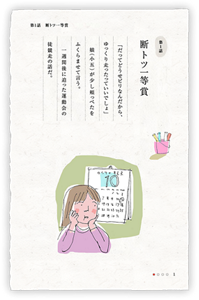 第1話 断トツ一等賞
第1話
断トツ一等賞
「だってどうせビリなんだから、
ゆっくり走ったっていいでしょ」
麺(小五)が少し頬っぺたを
ふくらませて言う。
一週間後に迫った運動会の
徒競走の話だ。
10
1